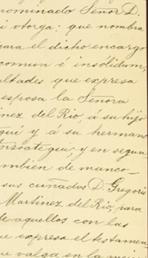 nominado Señor D.
i otorga: que nombra
para el dicho encargo
comun é insolidum,
ultades que expresa
esposa la Señora
nez del Rio, á su hijo
qui y á su hermano
y en segun
mbien de manco-
sus cuñados D. Gregorio
Martinez del Rio, para
de aquellos con las
e expresa el testamen
que valga en la